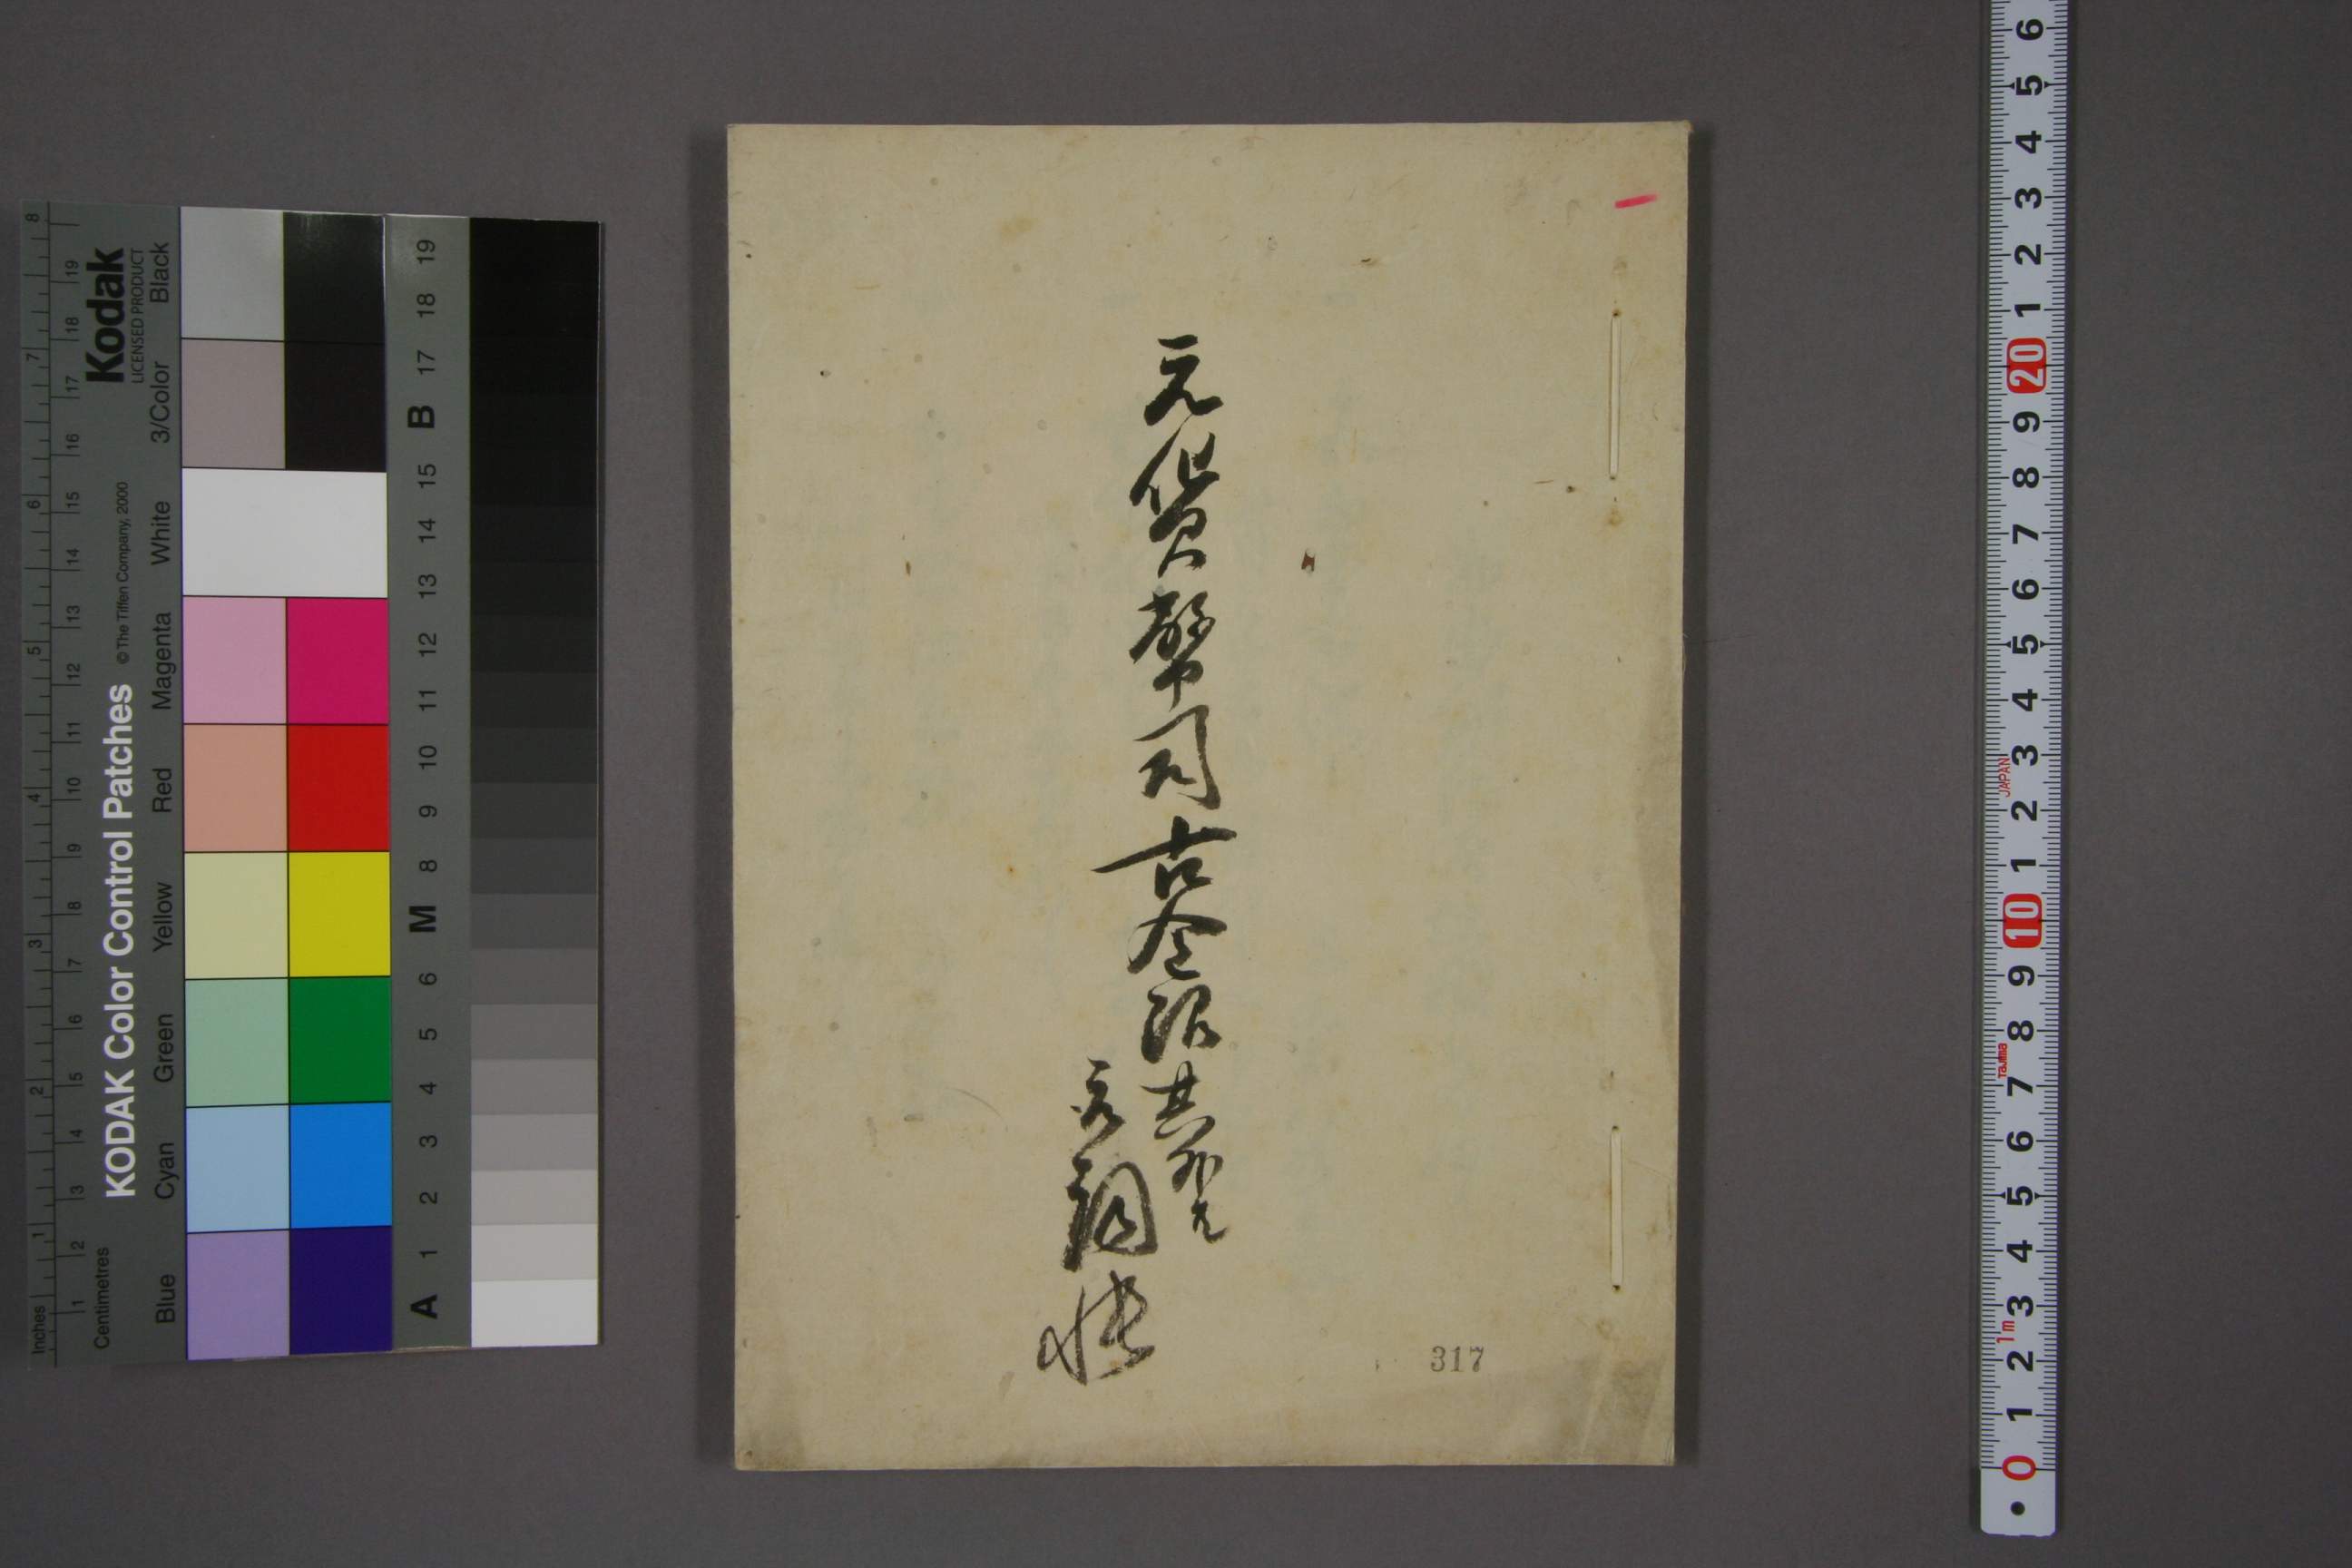 元貨幣司古金銀其外
取調帳
317
KODAK Color Control Patches
© The Tiffen Company, 2000
Kodak
LICENSED PRODUCT
Inches
1 2 3 4 5 6 7 8
Centimetres
1 2 3 4 5 6 7 8 9 10 11 12 13 14 15 16 17 18 19
Blue Cyan Green Yellow Red Magenta White 3/Color Black
A 1 2 3 4 5 6 M 8 9 10 11 12 13 14 15 B 17 18 19
0 1 2 3 4 5 6 7 8 9 10 1 2 3 4 5 6 7 8 9 20 1 2 3 4 5 6
1m
Tajima
JAPAN